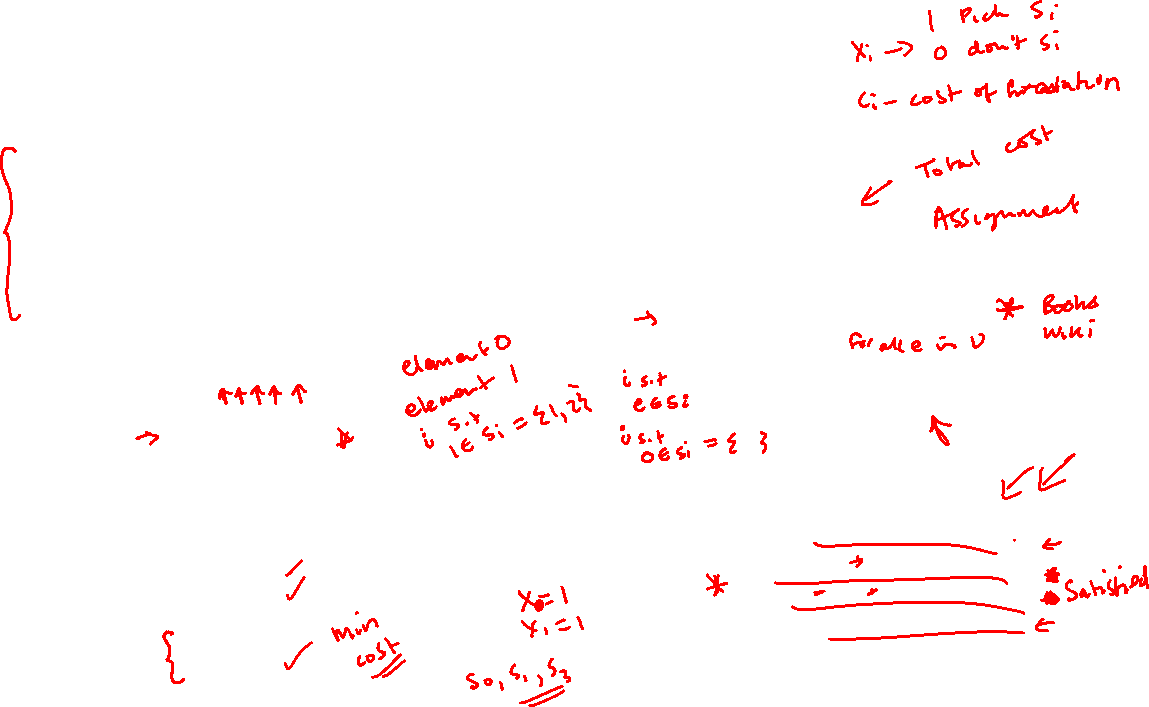 1 Pick Si
xi → 0 don't Si
Ci - cost of
Total cost
Assignment
* Books
Wiki
for all e in U
element 0
element 1
i s.t
1 ∈ Si = {1, 2}
i s.t
e ∈ Si
i s.t
0 ∈ Si = { }
Satisfied
min
cost
x0 = 1
x1 = 1
S0, S1, S3